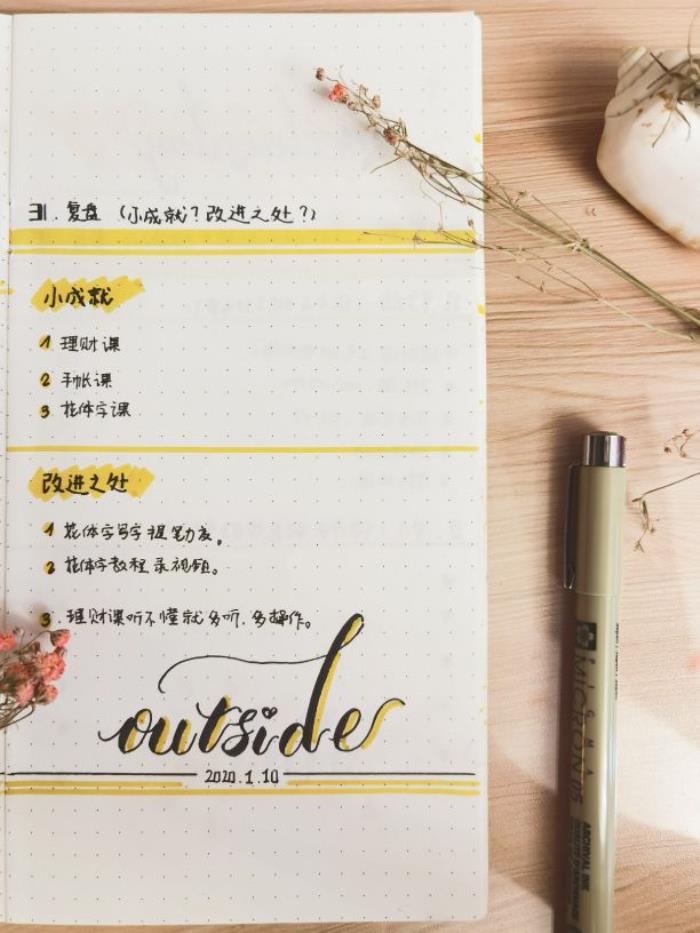 31. 复盘（小成就？改进之处？）
小成就
1 理财课
2 手帐课
3 花体字课
改进之处
1 花体字写字握笔力度。
2 花体字教程录视频。
3. 理财课听不懂就多听.多操作。
outside
2020.1.10
PIGMA
MICRON 05
ARCHIVAL INK